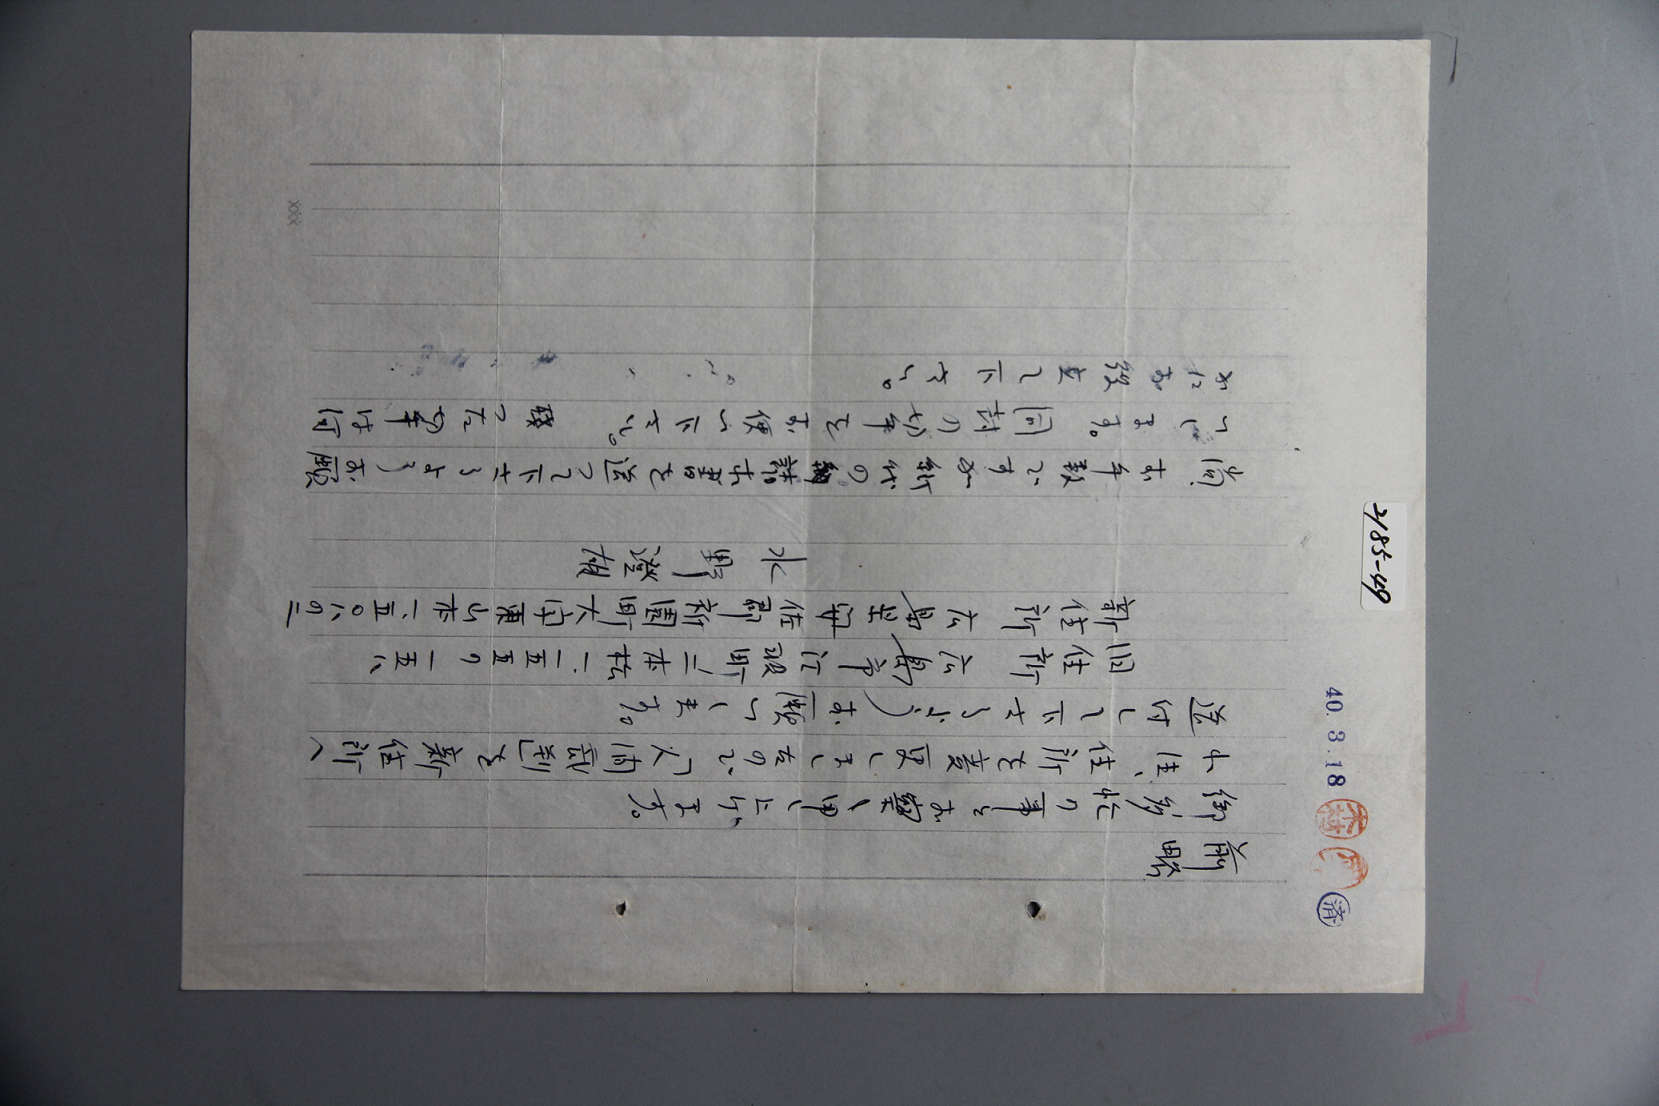 2185-49
40.3.18
木村
済
前略
御多忙の事とお察し申し上げます。
小生、住所を変更しましたので「 」を新住所へ
送付して下さるようお願いします。
旧住所 広島市江波町二本松一五五の一五八
新住所 広島県安佐郡祇園町大字東山本一五〇八の二
水野澄
尚、お手数ですが紙代の請求書を送って下さるようお願
いします。同封の切手をお使い下さい。残った切手は何
かにお役立て下さい。